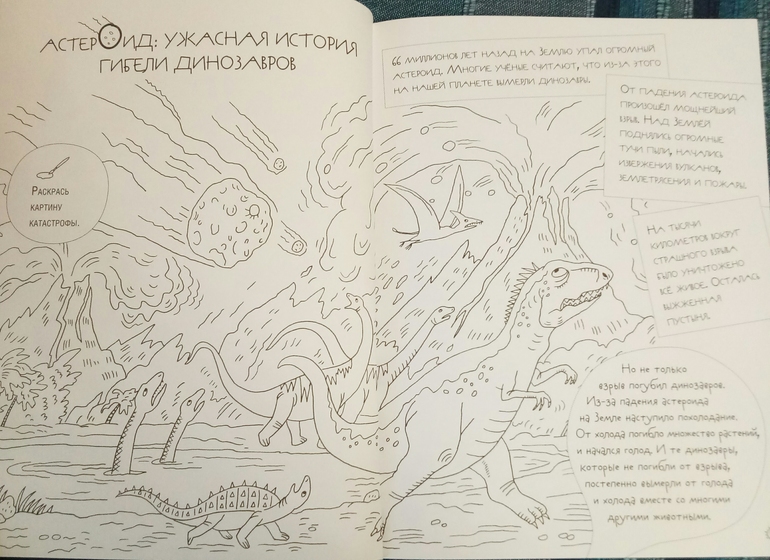 АСТЕРОИД: УЖАСНАЯ ИСТОРИЯ
ГИБЕЛИ ДИНОЗАВРОВ
РАСКРАСЬ
КАРТИНУ
КАТАСТРОФЫ.
66 МИЛЛИОНОВ ЛЕТ НАЗАД НА ЗЕМЛЮ УПАЛ ОГРОМНЫЙ
АСТЕРОИД. МНОГИЕ УЧЁНЫЕ СЧИТАЮТ, ЧТО ИЗ-ЗА ЭТОГО
НА НАШЕЙ ПЛАНЕТЕ ВЫМЕРЛИ ДИНОЗАВРЫ.
ОТ ПАДЕНИЯ АСТЕРОИДА
ПРОИЗОШЁЛ МОЩНЕЙШИЙ
ВЗРЫВ. НАД ЗЕМЛЁЙ
ПОДНЯЛИСЬ ОГРОМНЫЕ
ТУЧИ ПЫЛИ, НАЧАЛИСЬ
ИЗВЕРЖЕНИЯ ВУЛКАНОВ,
ЗЕМЛЕТРЯСЕНИЯ И ПОЖАРЫ.
НА ТЫСЯЧИ
КИЛОМЕТРОВ ВОКРУГ
СТРАШНОГО ВЗРЫВА
БЫЛО УНИЧТОЖЕНО
ВСЁ ЖИВОЕ. ОСТАЛАСЬ
ВЫЖЖЕННАЯ
ПУСТЫНЯ.
Но не только
взрыв погубил динозавров.
Из-за падения астероида
на Земле наступило похолодание.
От холода погибло множество растений,
и начался голод. И те динозавры,
которые не погибли от взрыва,
постепенно вымерли от голода
и холода вместе со многими
другими животными.